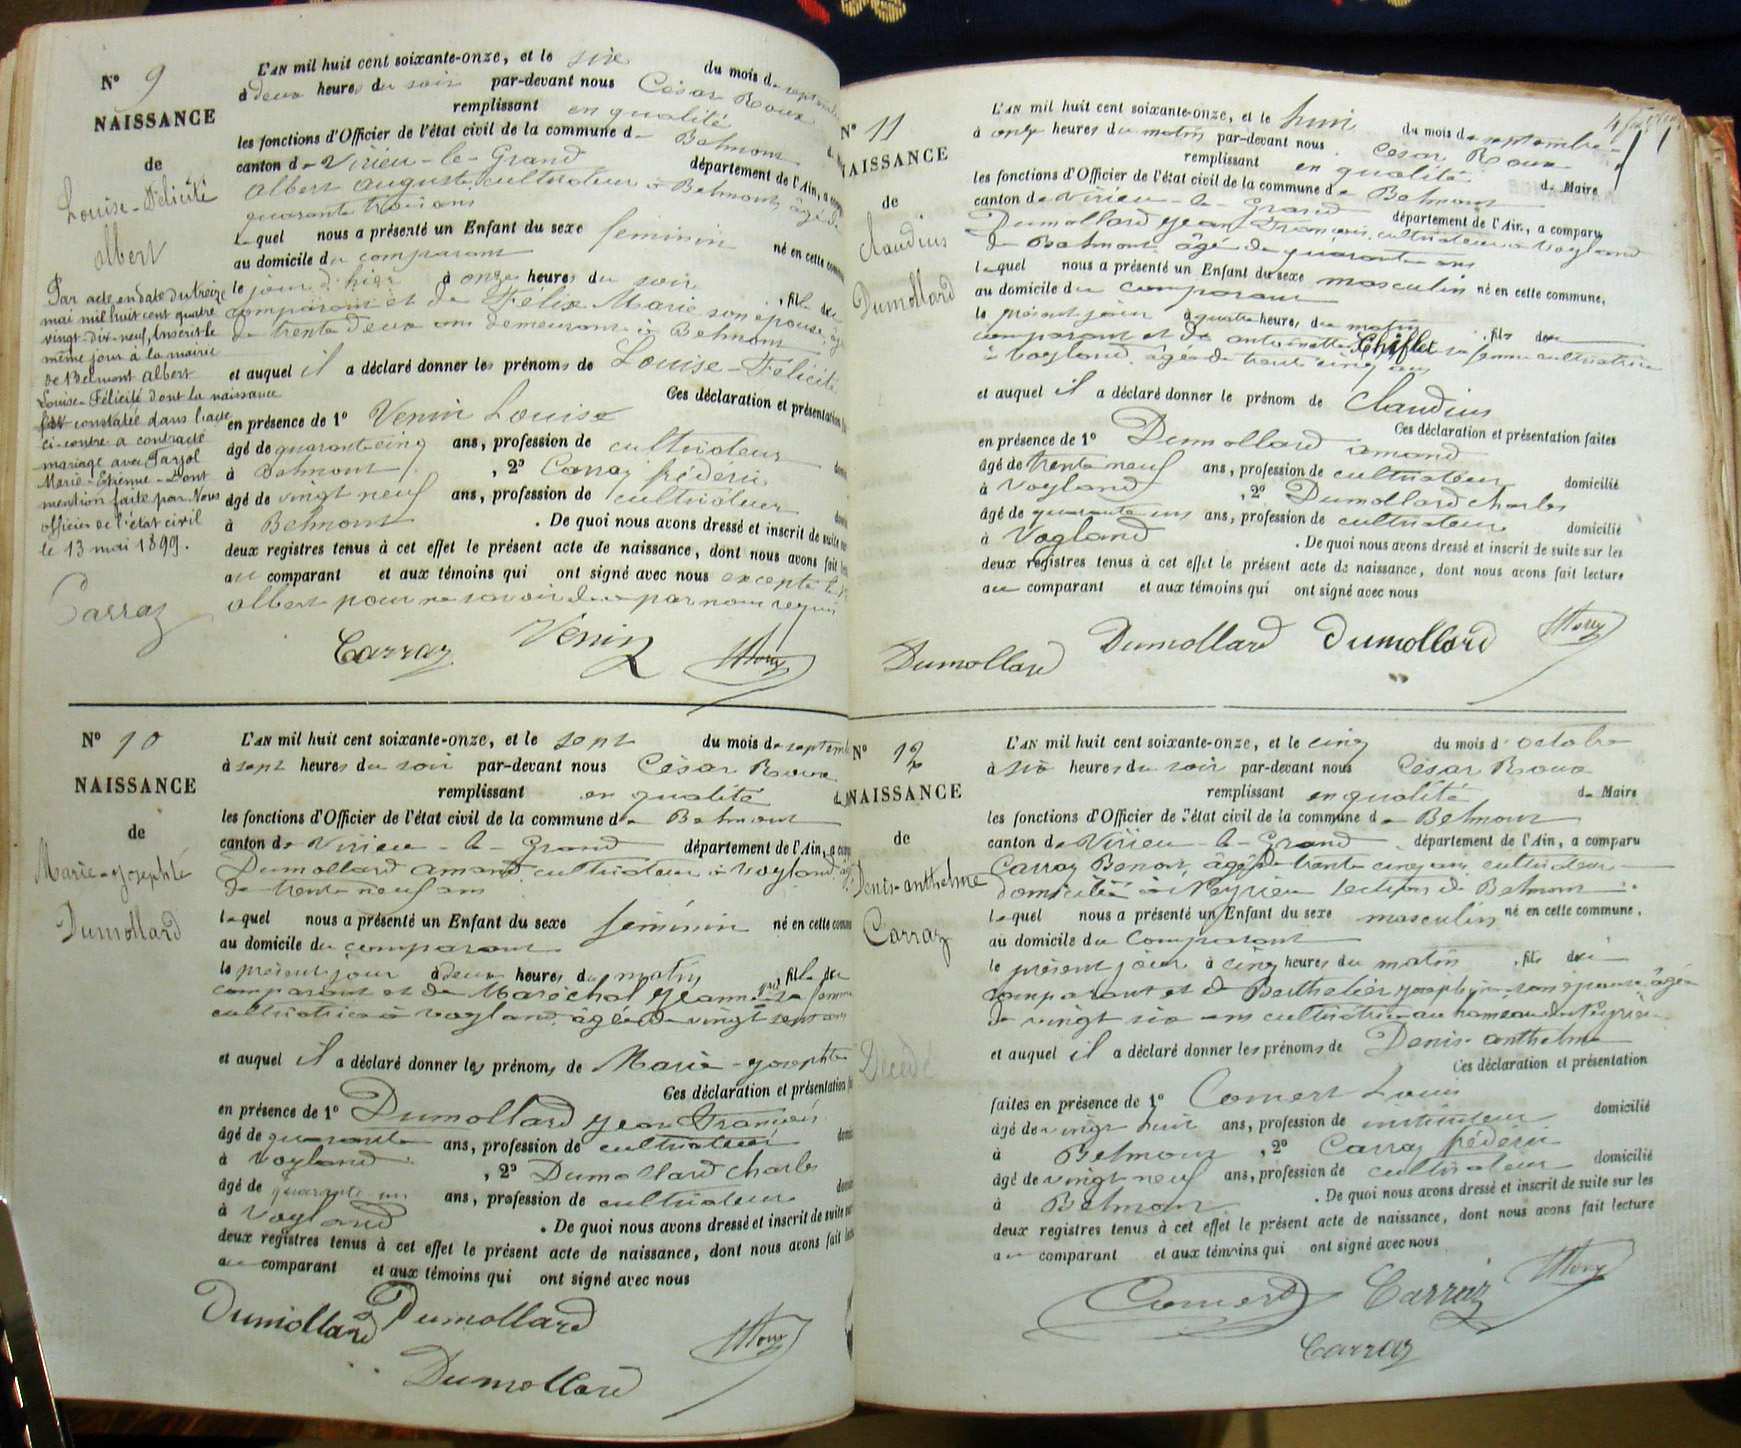 N° 9
NAISSANCE
de
Louise-Félicité
Albert
Par acte en date du treize
mai mil huit cent quatre
vingt-dix-neuf, inscrit le
même jour à la mairie
de Belmont Albert
Louise-Félicité dont la naissance
est constatée dans l'acte
ci-contre a contracté
mariage avec
Marie-Etienne - Dont
mention faite par Nous
officier de l'état civil
le 13 mai 1899.
Carraz
L'AN mil huit cent soixante-onze, et le six du mois de septembre
à deux heures du soir par-devant nous César Roux
remplissant en qualité
les fonctions d'Officier de l'état civil de la commune de Belmont
canton de Virieu-le-Grand département de l'Ain, a
Albert auguste, cultivateur à Belmont, âgé de
quarante trois ans
lequel nous a présenté un Enfant du sexe féminin né en cette
au domicile du comparant
le jour d'hier à onze heures du soir, fille du
comparant et de Félix Marie son épouse
de trente deux ans demeurant à Belmont
et auquel il a déclaré donner les prénoms de Louise-Félicité
Ces déclaration et présentation
en présence de 1° Venin Louis
âgé de quarante cinq ans, profession de cultivateur
à Belmont, 2° Carraz frédéric
âgé de vingt neuf ans, profession de cultivateur
à Belmont. De quoi nous avons dressé et inscrit de suite
deux registres tenus à cet effet le présent acte de naissance, dont nous avons fait
au comparant et aux témoins qui ont signé avec nous excepté le
Albert pour ne savoir de ce par nous requis
Carraz Venin
N° 10
NAISSANCE
de
Marie-Josephte
Dumollard
L'AN mil huit cent soixante-onze, et le sept du mois de
à sept heures du soir par-devant nous César Roux
remplissant en qualité
les fonctions d'Officier de l'état civil de la commune de Belmont
canton de Virieu-le-Grand département de l'Ain, a
Dumollard amand cultivateur à Vogland
de trente neuf ans
lequel nous a présenté un Enfant du sexe féminin né en cette
au domicile du comparant
le présent jour à deux heures du matin, fille du
comparant et de Maréchal Jeanne sa femme
cultivatrice à Vogland, âgée de vingt sept ans
et auquel il a déclaré donner les prénoms de Marie-Josephte
Ces déclaration et présentation
en présence de 1° Dumollard Jean François
âgé de quarante ans, profession de cultivateur
à Vogland, 2° Dumollard Charles
âgé de quarante un ans, profession de cultivateur
à Vogland. De quoi nous avons dressé et inscrit de suite
deux registres tenus à cet effet le présent acte de naissance, dont nous avons fait
au comparant et aux témoins qui ont signé avec nous
Dumollard Dumollard
Dumollard
N° 11
NAISSANCE
de
Claudius
Dumollard
L'AN mil huit cent soixante-onze, et le huit du mois de septembre
à onze heures du matin par-devant nous César Roux
remplissant en qualité de Maire
les fonctions d'Officier de l'état civil de la commune de Belmont
canton de Virieu-le-Grand département de l'Ain, a comparu
Dumollard Jean François, cultivateur à Vogland
de Belmont, âgé de quarante ans
lequel nous a présenté un Enfant du sexe masculin né en cette commune,
au domicile du comparant
le présent jour à quatre heures du matin, fils du
comparant et de antoinette Chiflet sa femme cultivatrice
à Vogland, âgée de trente cinq ans
et auquel il a déclaré donner le prénom de Claudius
Ces déclaration et présentation faites
en présence de 1° Dumollard amand
âgé de trente neuf ans, profession de cultivateur domicilié
à Vogland, 2° Dumollard Charles
âgé de quarante un ans, profession de cultivateur domicilié
à Vogland. De quoi nous avons dressé et inscrit de suite sur les
deux registres tenus à cet effet le présent acte de naissance, dont nous avons fait lecture
au comparant et aux témoins qui ont signé avec nous
Dumollard Dumollard Dumollard
N° 12
NAISSANCE
de
Denis-anthelme
Carraz
Décédé
L'AN mil huit cent soixante-onze, et le cinq du mois d'octobre
à six heures du soir par-devant nous César Roux
remplissant en qualité de Maire
les fonctions d'Officier de l'état civil de la commune de Belmont
canton de Virieu-le-Grand département de l'Ain, a comparu
Carraz Benoit, âgé de trente cinq ans, cultivateur
domicilié à section de Belmont
lequel nous a présenté un Enfant du sexe masculin né en cette commune,
au domicile du Comparant
le présent jour, à cinq heures du matin, fils du
comparant et de Berthelier Josephine son épouse, âgée
de vingt six ans cultivatrice au hameau de
et auquel il a déclaré donner les prénoms de Denis-anthelme
Ces déclaration et présentation
faites en présence de 1° Comert Louis
âgé de vingt huit ans, profession de instituteur domicilié
à Belmont, 2° Carraz frédéric
âgé de vingt neuf ans, profession de cultivateur domicilié
à Belmont. De quoi nous avons dressé et inscrit de suite sur les
deux registres tenus à cet effet le présent acte de naissance, dont nous avons fait lecture
au comparant et aux témoins qui ont signé avec nous
Comert Carraz
Carraz